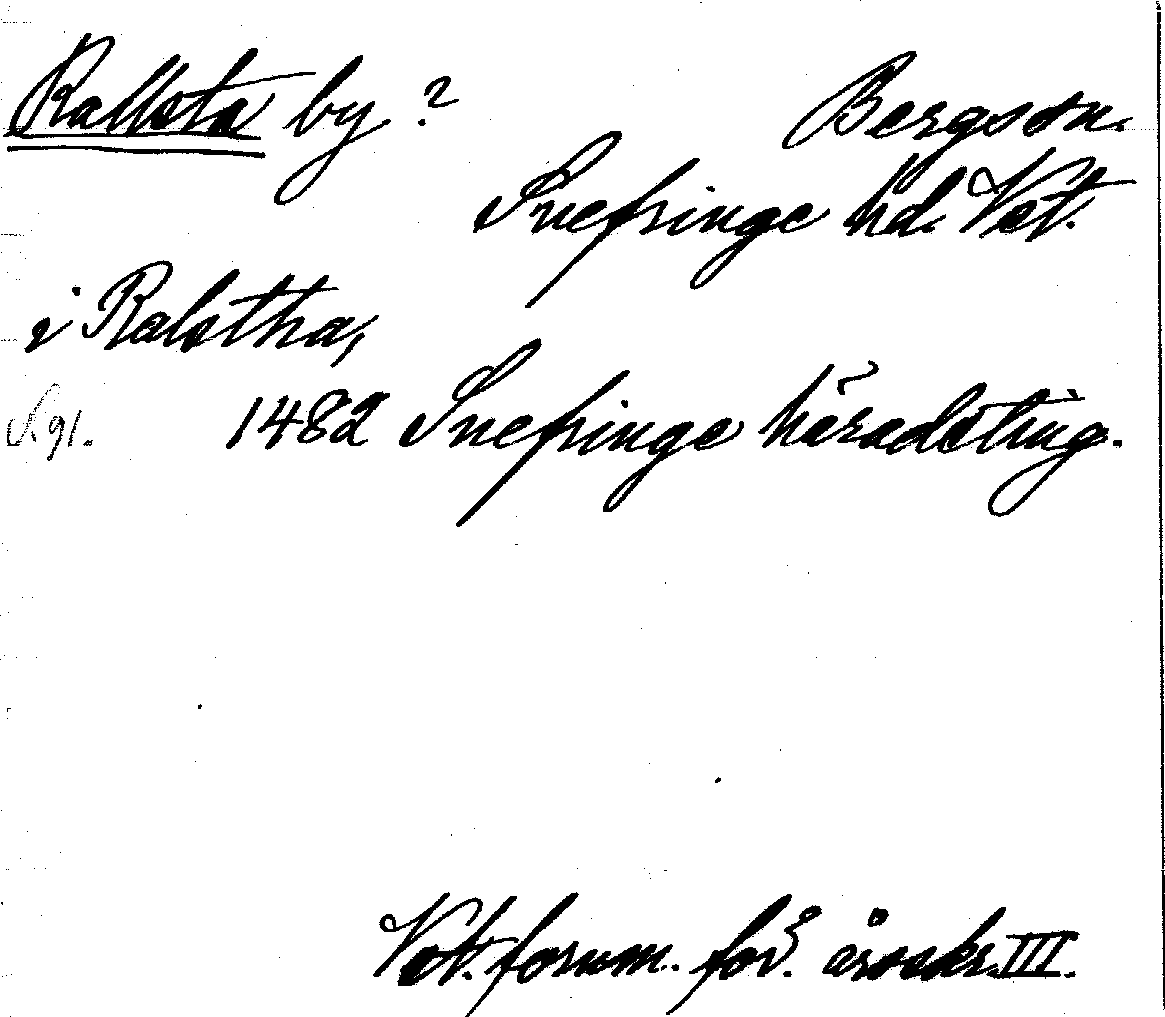 Rallsta by? Bergs sn.
Snefringe hd. Vst.
i Ralstha,
S. 91. 1482 Snefringe häradsting.
Vst. fornm. för. årsskr. III.